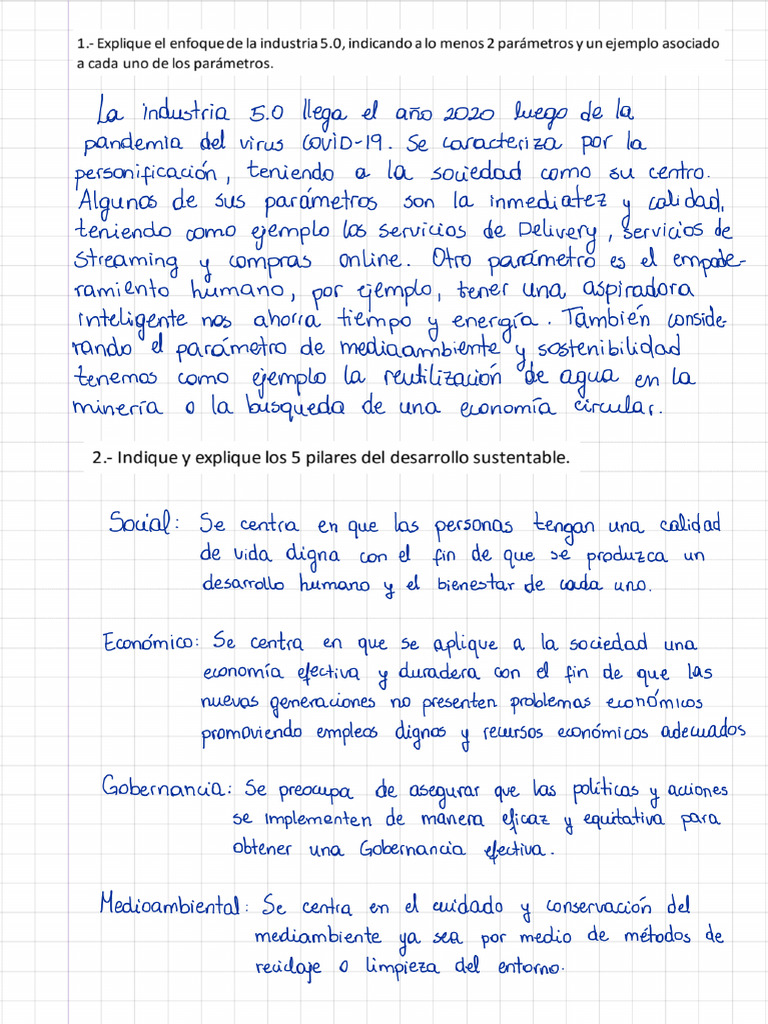 1.- Explique el enfoque de la industria 5.0, indicando a lo menos 2 parámetros y un ejemplo asociado
a cada uno de los parámetros.
La industria 5.0 llega el año 2020 luego de la
pandemia del virus COVID-19. Se caracteriza por la
personificación, teniendo a la sociedad como su centro.
Algunos de sus parámetros son la inmediatez y calidad,
teniendo como ejemplo los servicios de Delivery, servicios de
streaming y compras online. Otro parámetro es el empode-
ramiento humano, por ejemplo, tener una aspiradora
inteligente nos ahorra tiempo y energía. También conside-
rando el parámetro de mediaambiente y sostenibilidad
tenemos como ejemplo la reutilización de agua en la
minería o la busqueda de una economía circular.
2.- Indique y explique los 5 pilares del desarrollo sustentable.
Social: Se centra en que las personas tengan una calidad
de vida digna con el fin de que se produzca un
desarrollo humano y el bienestar de cada uno.
Económico: Se centra en que se aplique a la sociedad una
economía efectiva y duradera con el fin de que las
nuevas generaciones no presenten problemas económicos
promoviendo empleos dignos y recursos económicos adecuados
Gobernancia: Se preocupa de asegurar que las políticas y acciones
se implementen de manera eficaz y equitativa para
obtener una Gobernancia efectiva.
Medioambiental: Se centra en el cuidado y conservación del
mediambiente ya sea por medio de métodos de
reciclaje o limpieza del entorno.